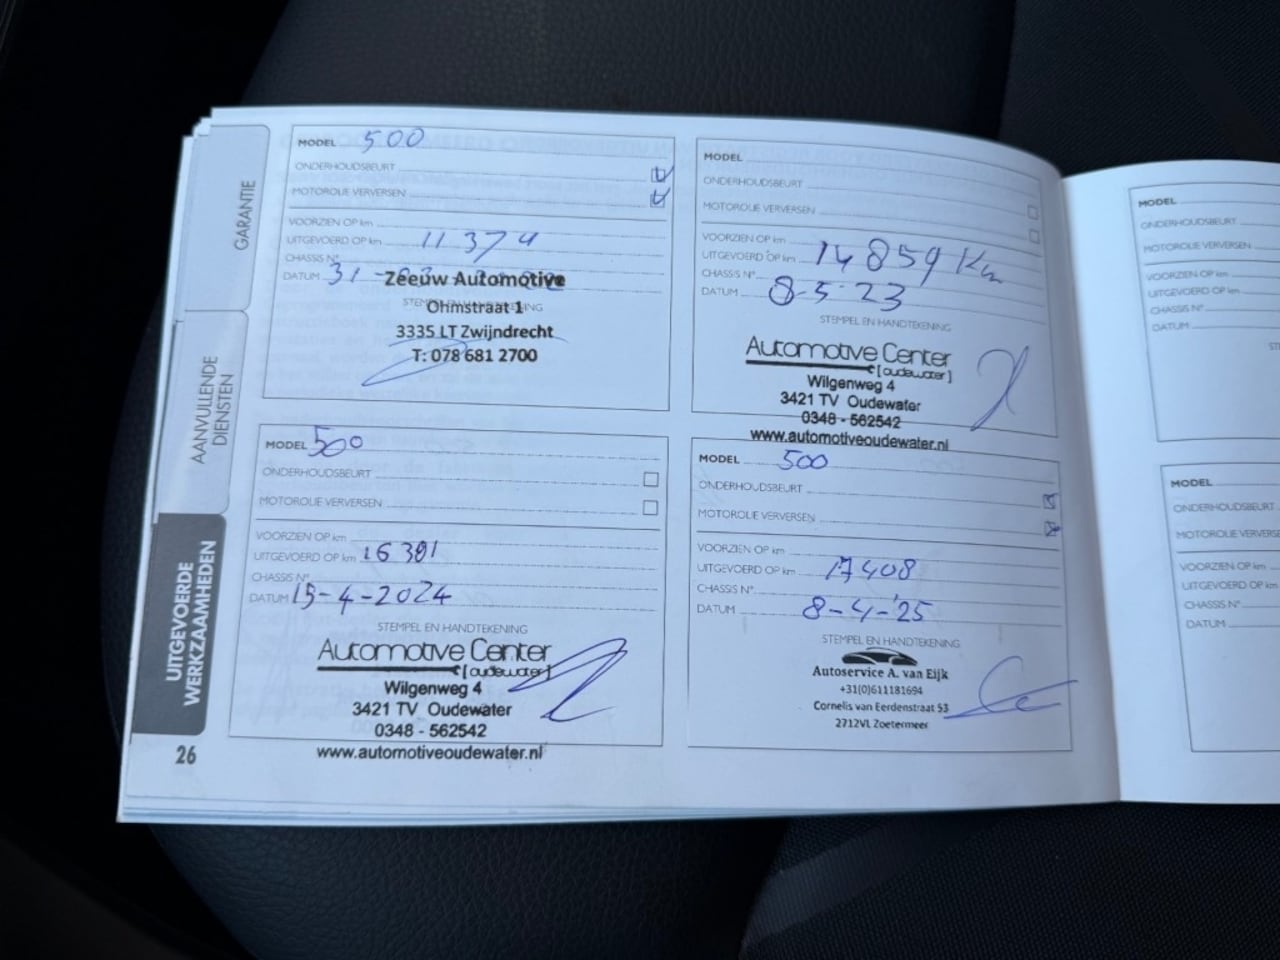 GARANTIE
AANVULLENDE
DIENSTEN
UITGEVOERDE
WERKZAAMHEDEN
26
MODEL 500
ONDERHOUDSBEURT
MOTOROLIE VERVERSEN
VOORZIEN OP km
UITGEVOERD OP km 11374
CHASSIS N°
DATUM 31
STEMPEL EN HANDTEKENING
Zeeuw Automotive
Ohmstraat 1
3335 LT Zwijndrecht
T: 078 681 2700
MODEL
ONDERHOUDSBEURT
MOTOROLIE VERVERSEN
VOORZIEN OP km
UITGEVOERD OP km 14859 Km
CHASSIS N°
DATUM 8-5-23
STEMPEL EN HANDTEKENING
Automotive Center
[oudewater]
Wilgenweg 4
3421 TV Oudewater
0348 - 562542
www.automotiveoudewater.nl
MODEL 500
ONDERHOUDSBEURT
MOTOROLIE VERVERSEN
VOORZIEN OP km
UITGEVOERD OP km 16381
CHASSIS N°
DATUM 15-4-2024
STEMPEL EN HANDTEKENING
Automotive Center
[oudewater]
Wilgenweg 4
3421 TV Oudewater
0348 - 562542
www.automotiveoudewater.nl
MODEL 500
ONDERHOUDSBEURT
MOTOROLIE VERVERSEN
VOORZIEN OP km
UITGEVOERD OP km 17408
CHASSIS N°
DATUM 8-4-'25
STEMPEL EN HANDTEKENING
Autoservice A. van Eijk
+31(0)611181694
Cornelis van Eerdenstraat 53
2712VL Zoetermeer
MODEL
ONDERHOUDSBEURT
MOTOROLIE VERVERSEN
VOORZIEN OP km
UITGEVOERD OP km
CHASSIS N°
DATUM
MODEL
ONDERHOUDSBEURT
MOTOROLIE
VOORZIEN OP km
UITGEVOERD OP km
CHASSIS N°
DATUM